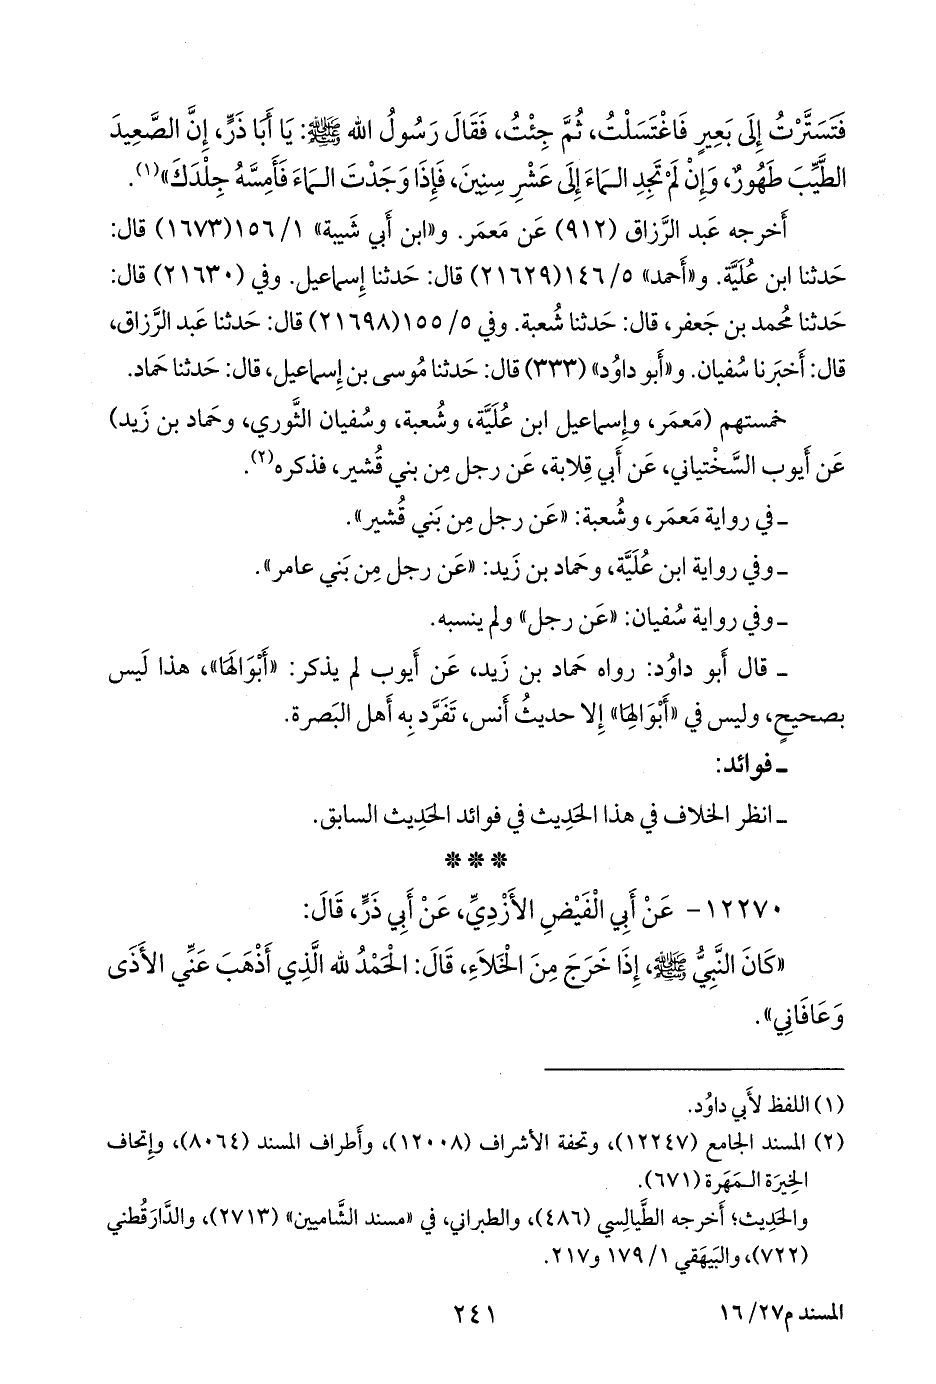 فَتَسَتَّرْتُ إِلَى بَعِيرٍ فَاغْتَسَلْتُ، ثُمَّ جِئْتُ، فَقَالَ رَسُولُ الله ﷺ: يَا أَبَا ذَرٍّ، إِنَّ الصَّعِيدَ
الطَّيِّبَ طَهُورٌ، وَإِنْ لَمْ تَجِدِ الـمَاءَ إِلَى عَشْرِ سِنِينَ، فَإِذَا وَجَدْتَ الـمَاءَ فَأَمِسَّهُ جِلْدَكَ»(١).
أَخرجه عَبد الرَّزاق (٩١٢) عَن مَعمَر. و«ابن أَبي شَيبة» ١/ ١٥٦(١٦٧٣) قال:
حَدثنا ابن عُلَيَّة. و«أَحمد» ٥/ ١٤٦(٢١٦٢٩) قال: حَدثنا إِسماعيل. وفي (٢١٦٣٠) قال:
حَدثنا مُحمد بن جَعفر، قال: حَدثنا شُعبة. وفي ٥/ ١٥٥(٢١٦٩٨) قال: حَدثنا عَبد الرَّزاق،
قال: أَخبَرنا سُفيان. و«أَبو داوُد» (٣٣٣) قال: حَدثنا مُوسى بن إِسماعيل، قال: حَدثنا حَماد.
خمستهم (مَعمَر، وإِسماعيل ابن عُلَيَّة، وشُعبة، وسُفيان الثَّوري، وحَماد بن زَيد)
عَن أَيوب السَّخْتياني، عَن أَبي قِلابة، عَن رجل مِن بني قُشير، فذكره(٢).
ـ في رواية مَعمَر، وشُعبة: «عَن رجل مِن بَني قُشير».
ـ وفي رواية ابن عُلَيَّة، وحَماد بن زَيد: «عَن رجل مِن بَني عامر».
ـ وفي رواية سُفيان: «عَن رجل» ولم ينسبه.
ـ قال أَبو داوُد: رواه حَماد بن زَيد، عَن أَيوب لم يذكر: «أَبْوَالَهَا»، هذا لَيس
بصحيحٍ، وليس في «أَبْوَالِهَا» إِلا حديثُ أَنس، تَفَرَّد بِه أَهل البَصرة.
ـ فوائد:
ـ انظر الخلاف في هذا الحَدِيث في فوائد الحَدِيث السابق.
***
١٢٢٧٠- عَنْ أَبِي الْفَيْضِ الأَزْدِيِّ، عَنْ أَبِي ذَرٍّ، قَالَ:
«كَانَ النَّبِيُّ ﷺ، إِذَا خَرَجَ مِنَ الْخَلَاءِ، قَالَ: الْحَمْدُ لله الَّذِي أَذْهَبَ عَنِّي الأَذَى
وَعَافَانِي».
(١) اللفظ لأَبي داوُد.
(٢) المسند الجامع (١٢٢٤٧)، وتحفة الأشراف (١٢٠٠٨)، وأَطراف المسند (٨٠٦٤)، وإِتحاف
الخِيرَة الـمَهَرة (٦٧١).
والحَدِيث؛ أَخرجه الطَّيالِسي (٤٨٦)، والطبراني، في «مسند الشَّاميين» (٢٧١٣)، والدَّارَقُطني
(٧٢٢)، والبَيهَقي ١/ ١٧٩ و٢١٧.
المسند م٢٧/ ١٦
٢٤١